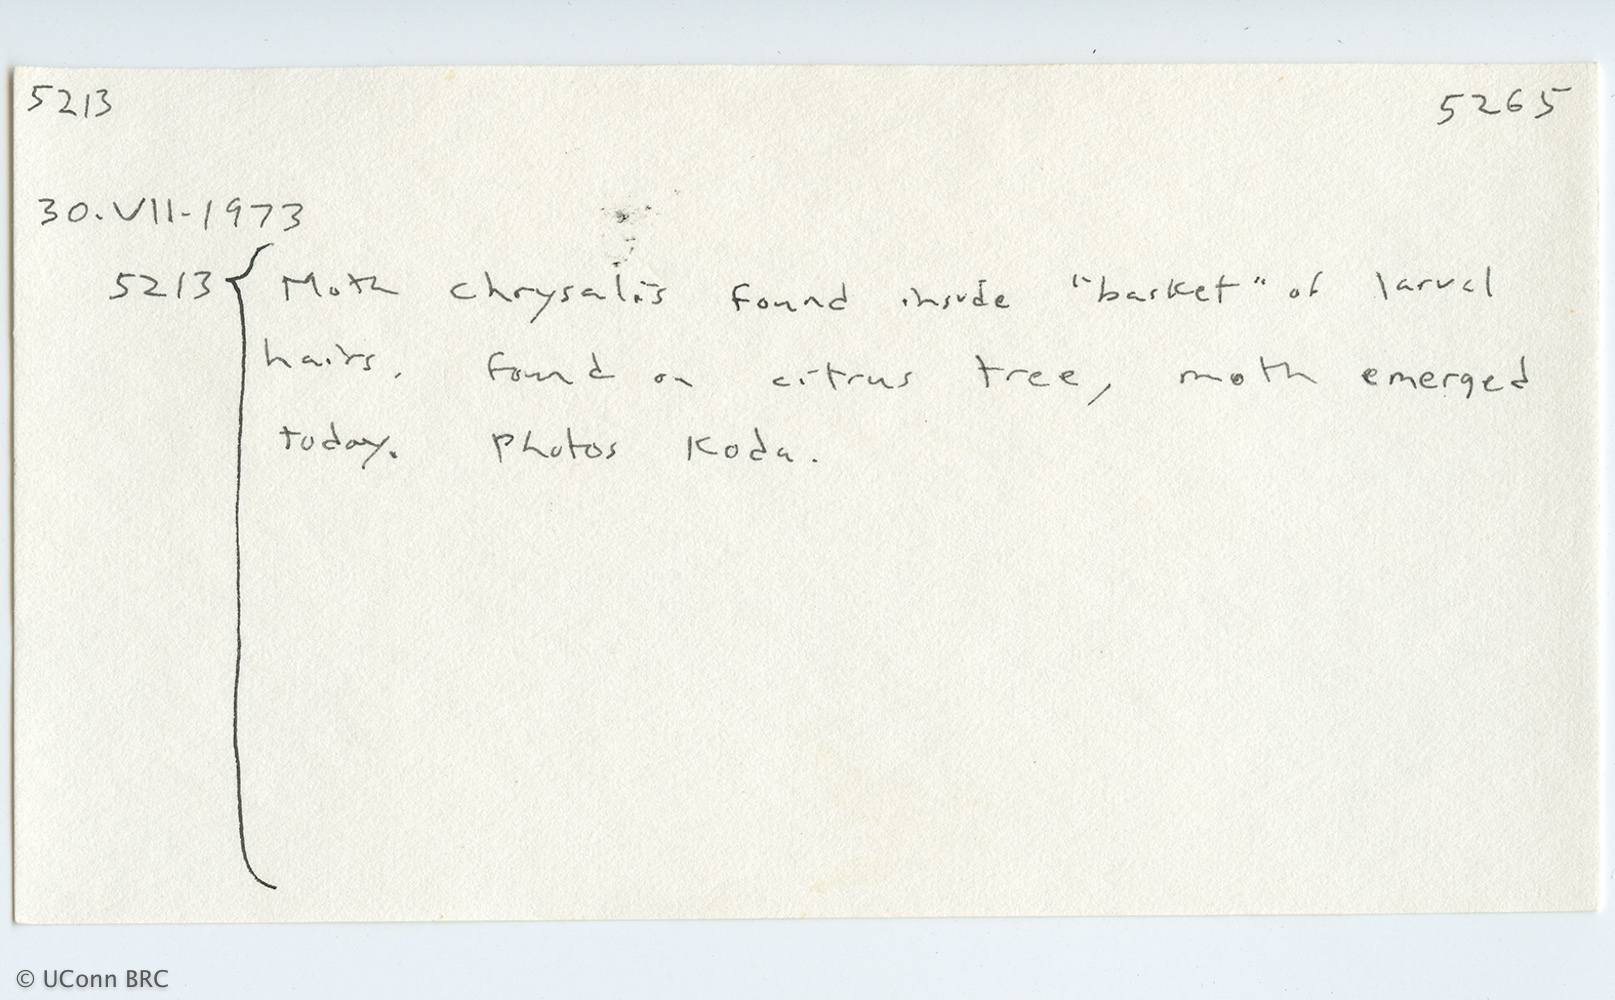 5213 5265
30.VII-1973
5213 { Moth chrysalis found inside "basket" of larval
hairs. Found on citrus tree, moth emerged
today. Photos Koda.
© UConn BRC